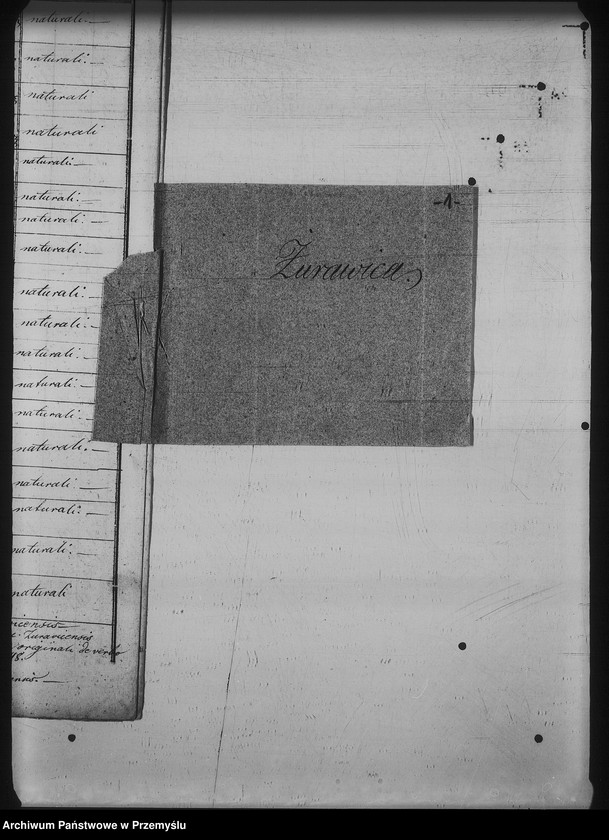 naturali.
naturali.
naturali
naturali
naturali.
naturali.
naturali.
naturali.
naturali.
naturali.
naturali.
naturali.
naturali.
naturali.
naturali
naturali.
naturali.
naturali
Zuravicensis
originali de verbo
-1-
Żurawica
Archiwum Państwowe w Przemyślu